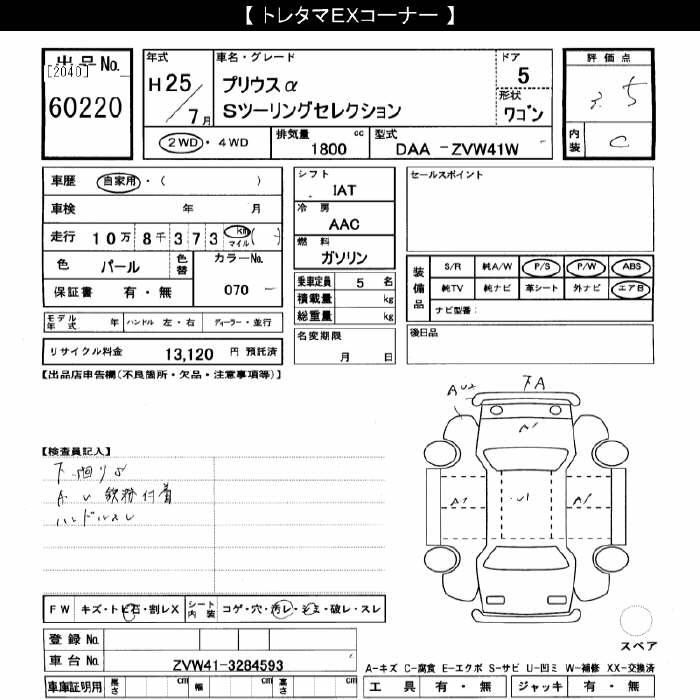 【 トレタマEXコーナー 】
出品No.
[2040]
60220
年式
H25/7月
車名・グレード
プリウスα
Sツーリングセレクション
ドア
5
形状
ワゴン
評価点
5
内装
C
2WD・4WD
排気量 1800 cc
型式 DAA -ZVW41W
車歴 自家用・( )
車検 年 月
走行 10万8千373 km マイル ( )
色 パール 色替 カラーNo. 070
保証書 有・無
モデル年式 年 ハンドル 左・右 ディーラー・並行
リサイクル料金 13,120 円 預託済
シフト
IAT
冷房
AAC
燃料
ガソリン
乗車定員 5 名
積載量 kg
総重量 kg
名変期限
月 日
セールスポイント
装備品
S/R 純A/W P/S P/W ABS
純TV 純ナビ 革シート 外ナビ エアB
ナビ型番:
後日品
【出品店申告欄(不良箇所・欠品・注意事項等)】
【検査員記入】
下廻りS
A U 鉄粉付着
ハンドルスレ
下A
A U2
A1
A1
U1
A1
FW キズ・トビ石・割レX シート内装 コゲ・穴・汚レ・シミ・破レ・スレ
登録No.
車台No. ZVW41-3284593
車庫証明用 長さ cm 幅 cm 高さ cm
スペア
A-キズ C-腐食 E-エクボ S-サビ U-凹ミ W-補修 XX-交換済
工具 有・無 ジャッキ 有・無